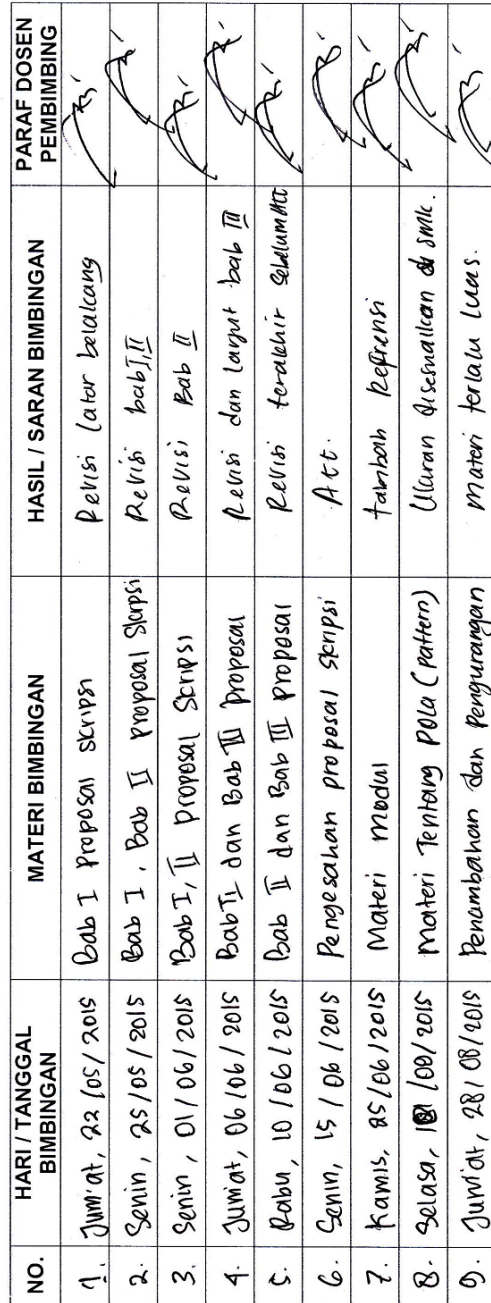 NO. HARI / TANGGAL BIMBINGAN MATERI BIMBINGAN HASIL / SARAN BIMBINGAN PARAF DOSEN PEMBIMBING
1. Jum'at, 22/05/2015 Bab I Proposal skripsi Revisi latar belakang
2. Senin, 25/05/2015 Bab I, Bab II proposal Skripsi Revisi bab I, II
3. Senin, 01/06/2015 Bab I, II proposal Skripsi Revisi Bab II
4. Jum'at, 06/06/2015 Bab II dan Bab III proposal Revisi dan lanjut bab III
5. Rabu, 10/06/2015 Bab II dan Bab III proposal Revisi terakhir sebelum Acc
6. Senin, 15/06/2015 Pengesahan proposal skripsi Acc.
7. Kamis, 25/06/2015 Materi modul tambah Refrensi
8. Selasa, /08/2015 Materi Tentang Pola (pattern) Ukuran disesuaikan di smk.
9. Jum'at, 28/08/2015 Penambahan dan pengurangan materi terlalu luas.